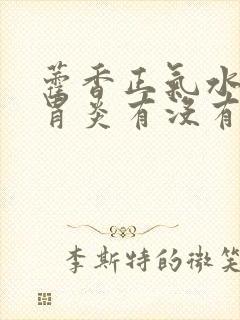 藿香正氣水
胃炎有沒有
李斯特的微笑